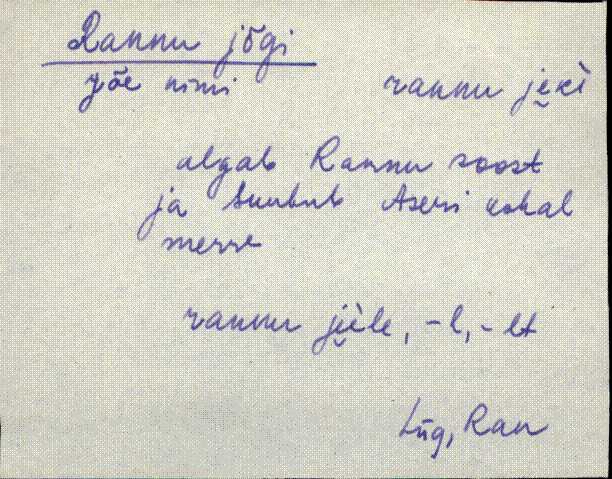 Rannu jõgi
jõe nimi rannu je̮ki
algab Rannu soost
ja suubub Aseri kohal
merre
rannu ji̮i̮le, -l, -lt
Lüg, Ran